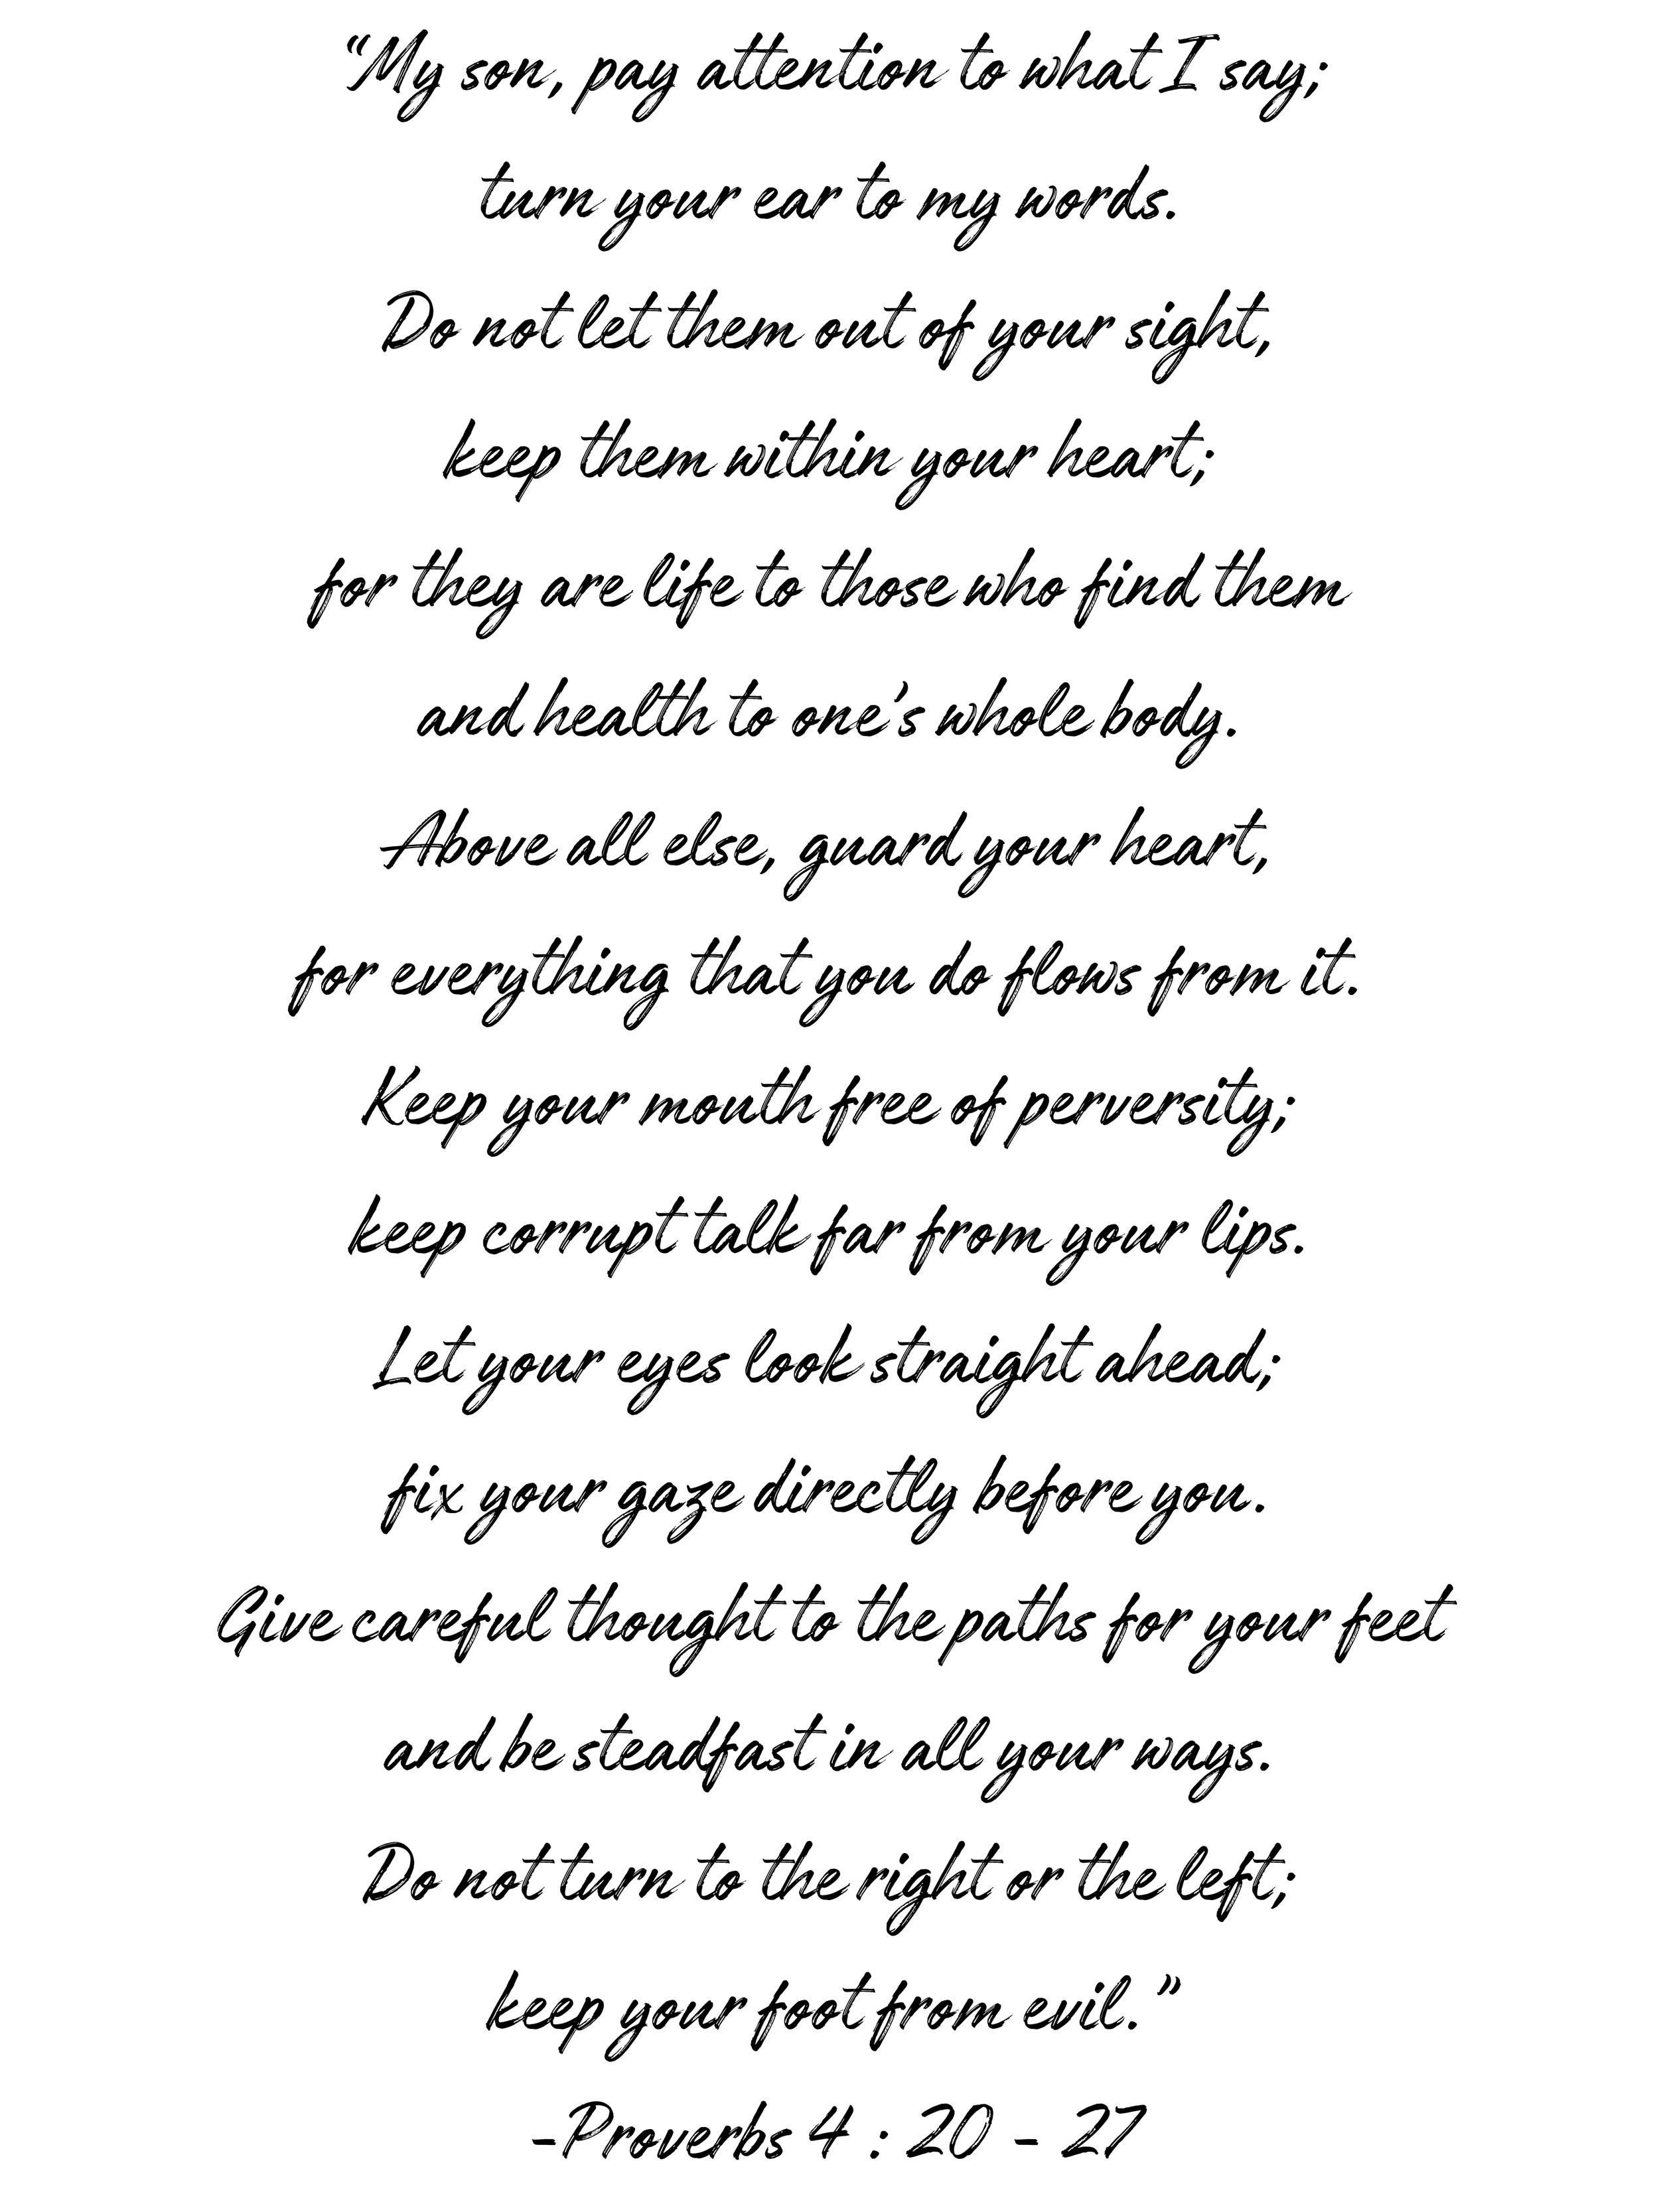 “My son, pay attention to what I say;
turn your ear to my words.
Do not let them out of your sight,
keep them within your heart;
for they are life to those who find them
and health to one’s whole body.
Above all else, guard your heart,
for everything that you do flows from it.
Keep your mouth free of perversity;
keep corrupt talk far from your lips.
Let your eyes look straight ahead;
fix your gaze directly before you.
Give careful thought to the paths for your feet
and be steadfast in all your ways.
Do not turn to the right or the left;
keep your foot from evil.”
-Proverbs 4 : 20 - 27